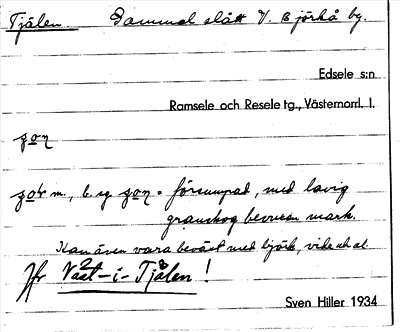 Tjälen Gammal slått V. Björkå by.
Edsele s:n
Ramsele och Resele tg., Västernorrl. l.
gon
m., b. sg. gon = försumpad, med lavig
granskog bevuxen mark.
Kan även vara beväxt med björk, vide och al.
Jfr Väst-i-Tjälen!
Sven Hiller 1934